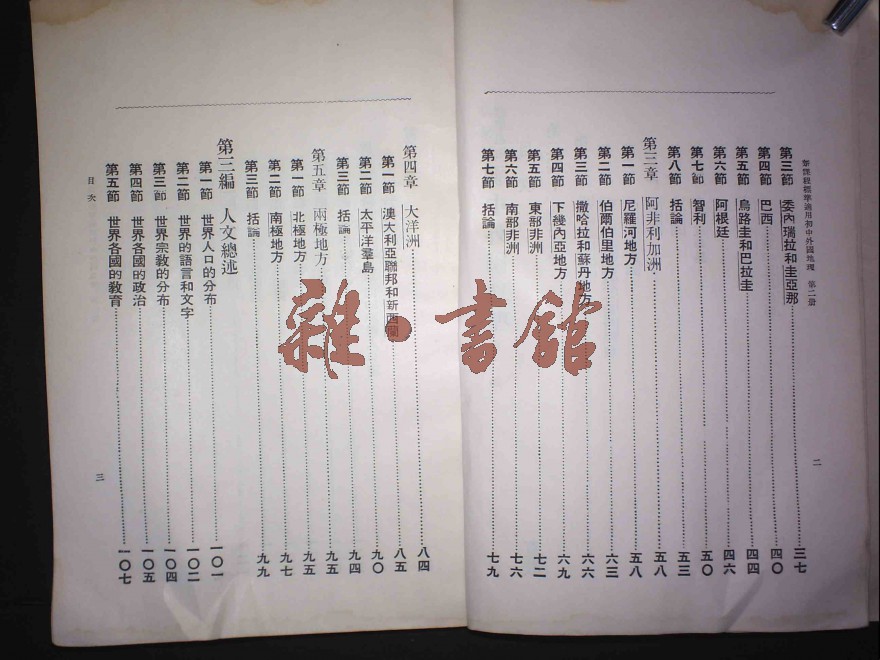 新課程標準適用初中外國地理 第二册
二
第三節 委內瑞拉和圭亞那 三七
第四節 巴西 四〇
第五節 烏路圭和巴拉圭 四四
第六節 阿根廷 四六
第七節 智利 五〇
第八節 括論 五三
第三章 阿非利加洲 五八
第一節 尼羅河地方 五八
第二節 伯爾伯里地方 六三
第三節 撒哈拉和蘇丹地方 六六
第四節 下幾內亞地方 六九
第五節 東部非洲 七二
第六節 南部非洲 七六
第七節 括論 七九
第四章 大洋洲 八四
第一節 澳大利亞聯邦和新西蘭 八五
第二節 太平洋羣島 九〇
第三節 括論 九四
第五章 兩極地方 九五
第一節 北極地方 九五
第二節 南極地方 九七
第三節 括論 九九
第三編 人文總述
第一節 世界人口的分布 一〇一
第二節 世界的語言和文字 一〇二
第三節 世界宗教的分布 一〇四
第四節 世界各國的政治 一〇五
第五節 世界各國的教育 一〇七
目次
三
雜·書館